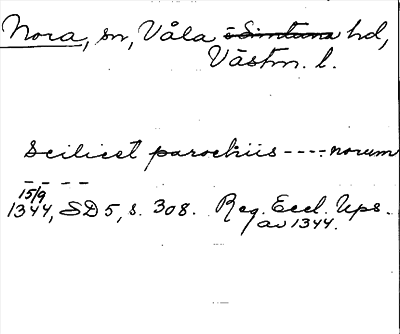 Nora, sn, Våla o Simtuna hd,
Västm. l.
Scilicet parochiis ---- norum
- - - -
15/9
1344, SD 5, s. 308. Reg. Eccl. Ups.
av 1344.